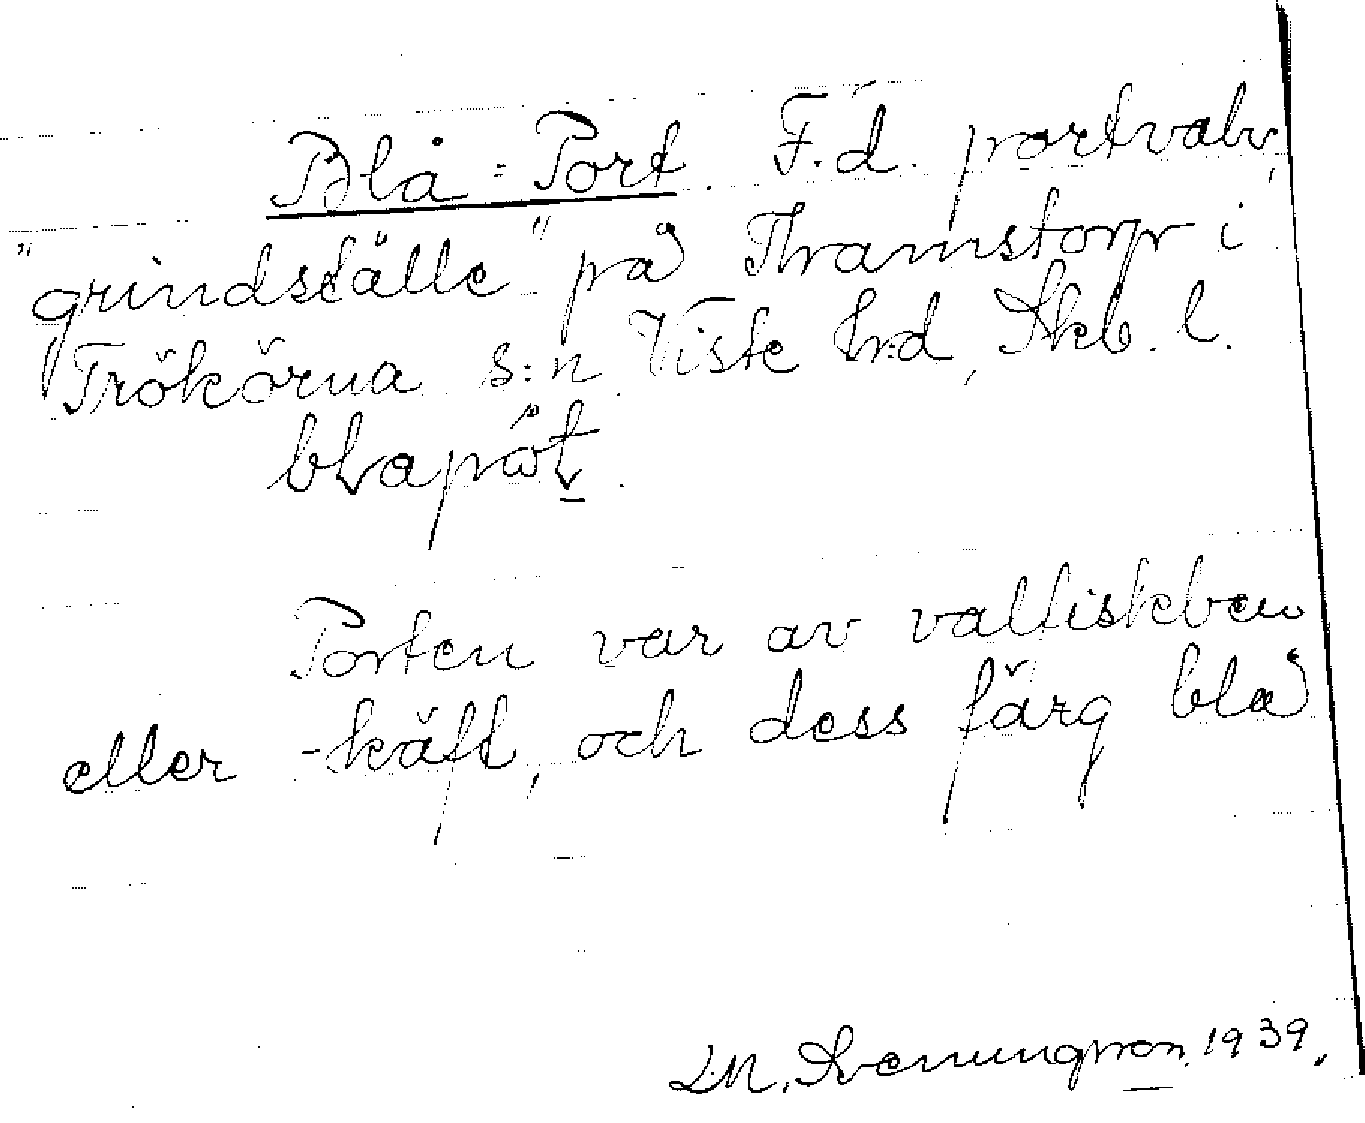 Blå-Port. F.d. portvalv,
"grindställe" på Thramstorp i
Trökörna s:n Viste hd, Skb. l.
Porten var av valfiskben
eller -käft, och dess färg blå
1939.